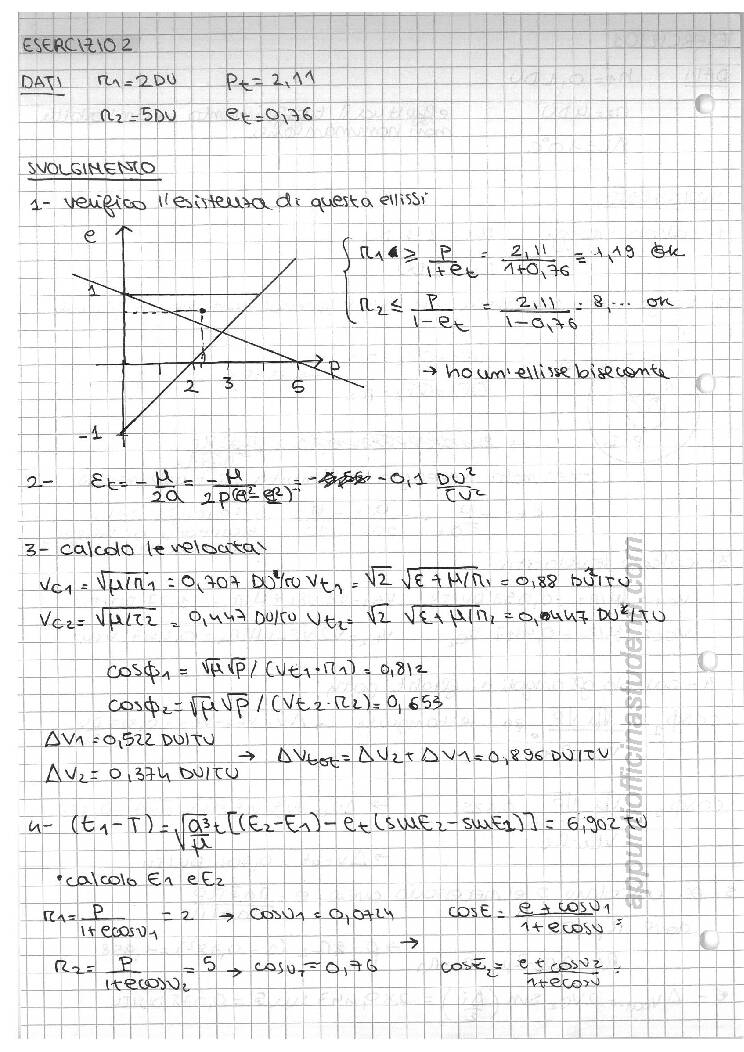 ESERCIZIO 2
DATI r1=2DU Pt=2,11
r2=5DU et=0,76
SVOLGIMENTO
1- verifico l'esistenza di questa ellissi
e
1
-1
2 3 5 P
r1 ≥ P/(1+et) = 2,11/(1+0,76) = 1,19 ok
r2 ≤ P/(1-et) = 2,11/(1-0,76) = 8,... ok
→ ho un'ellisse bisecante
2- Εt = -μ/2a = -μ/2p(e²-e²)⁻¹ = -0,1 DU²/TU²
3- calcolo le velocità
Vc1 = √μ/r1 = 0,707 DU²/TU Vt1 = √2 √ε+μ/r1 = 0,88 DU²/TU
Vc2 = √μ/r2 = 0,447 DU/TU Vt2 = √2 √ε+μ/r2 = 0,0447 DU²/TU
cosφ1 = √μ√p / (Vt1·r1) = 0,812
cosφ2 = √μ√p / (Vt2·r2) = 0,653
ΔV1 = 0,522 DU/TU
→ ΔVtot = ΔV2 + ΔV1 = 0,896 DU/TU
ΔV2 = 0,374 DU/TU
4- (t1-T) = √a³/μ t [(E2-E1) - et (sinE2-sinE1)] = 6,902 TU
• calcolo E1 e E2
r1 = P/(1+ecosν1) = 2 → cosν1 = 0,0724 cosE = (e+cosν1)/(1+ecosν) =
→
r2 = P/(1+ecosν2) = 5 → cosν1 = 0,76 cosE2 = (e+cosν2)/(1+ecosν) =
appuntiofficinastudenti.com